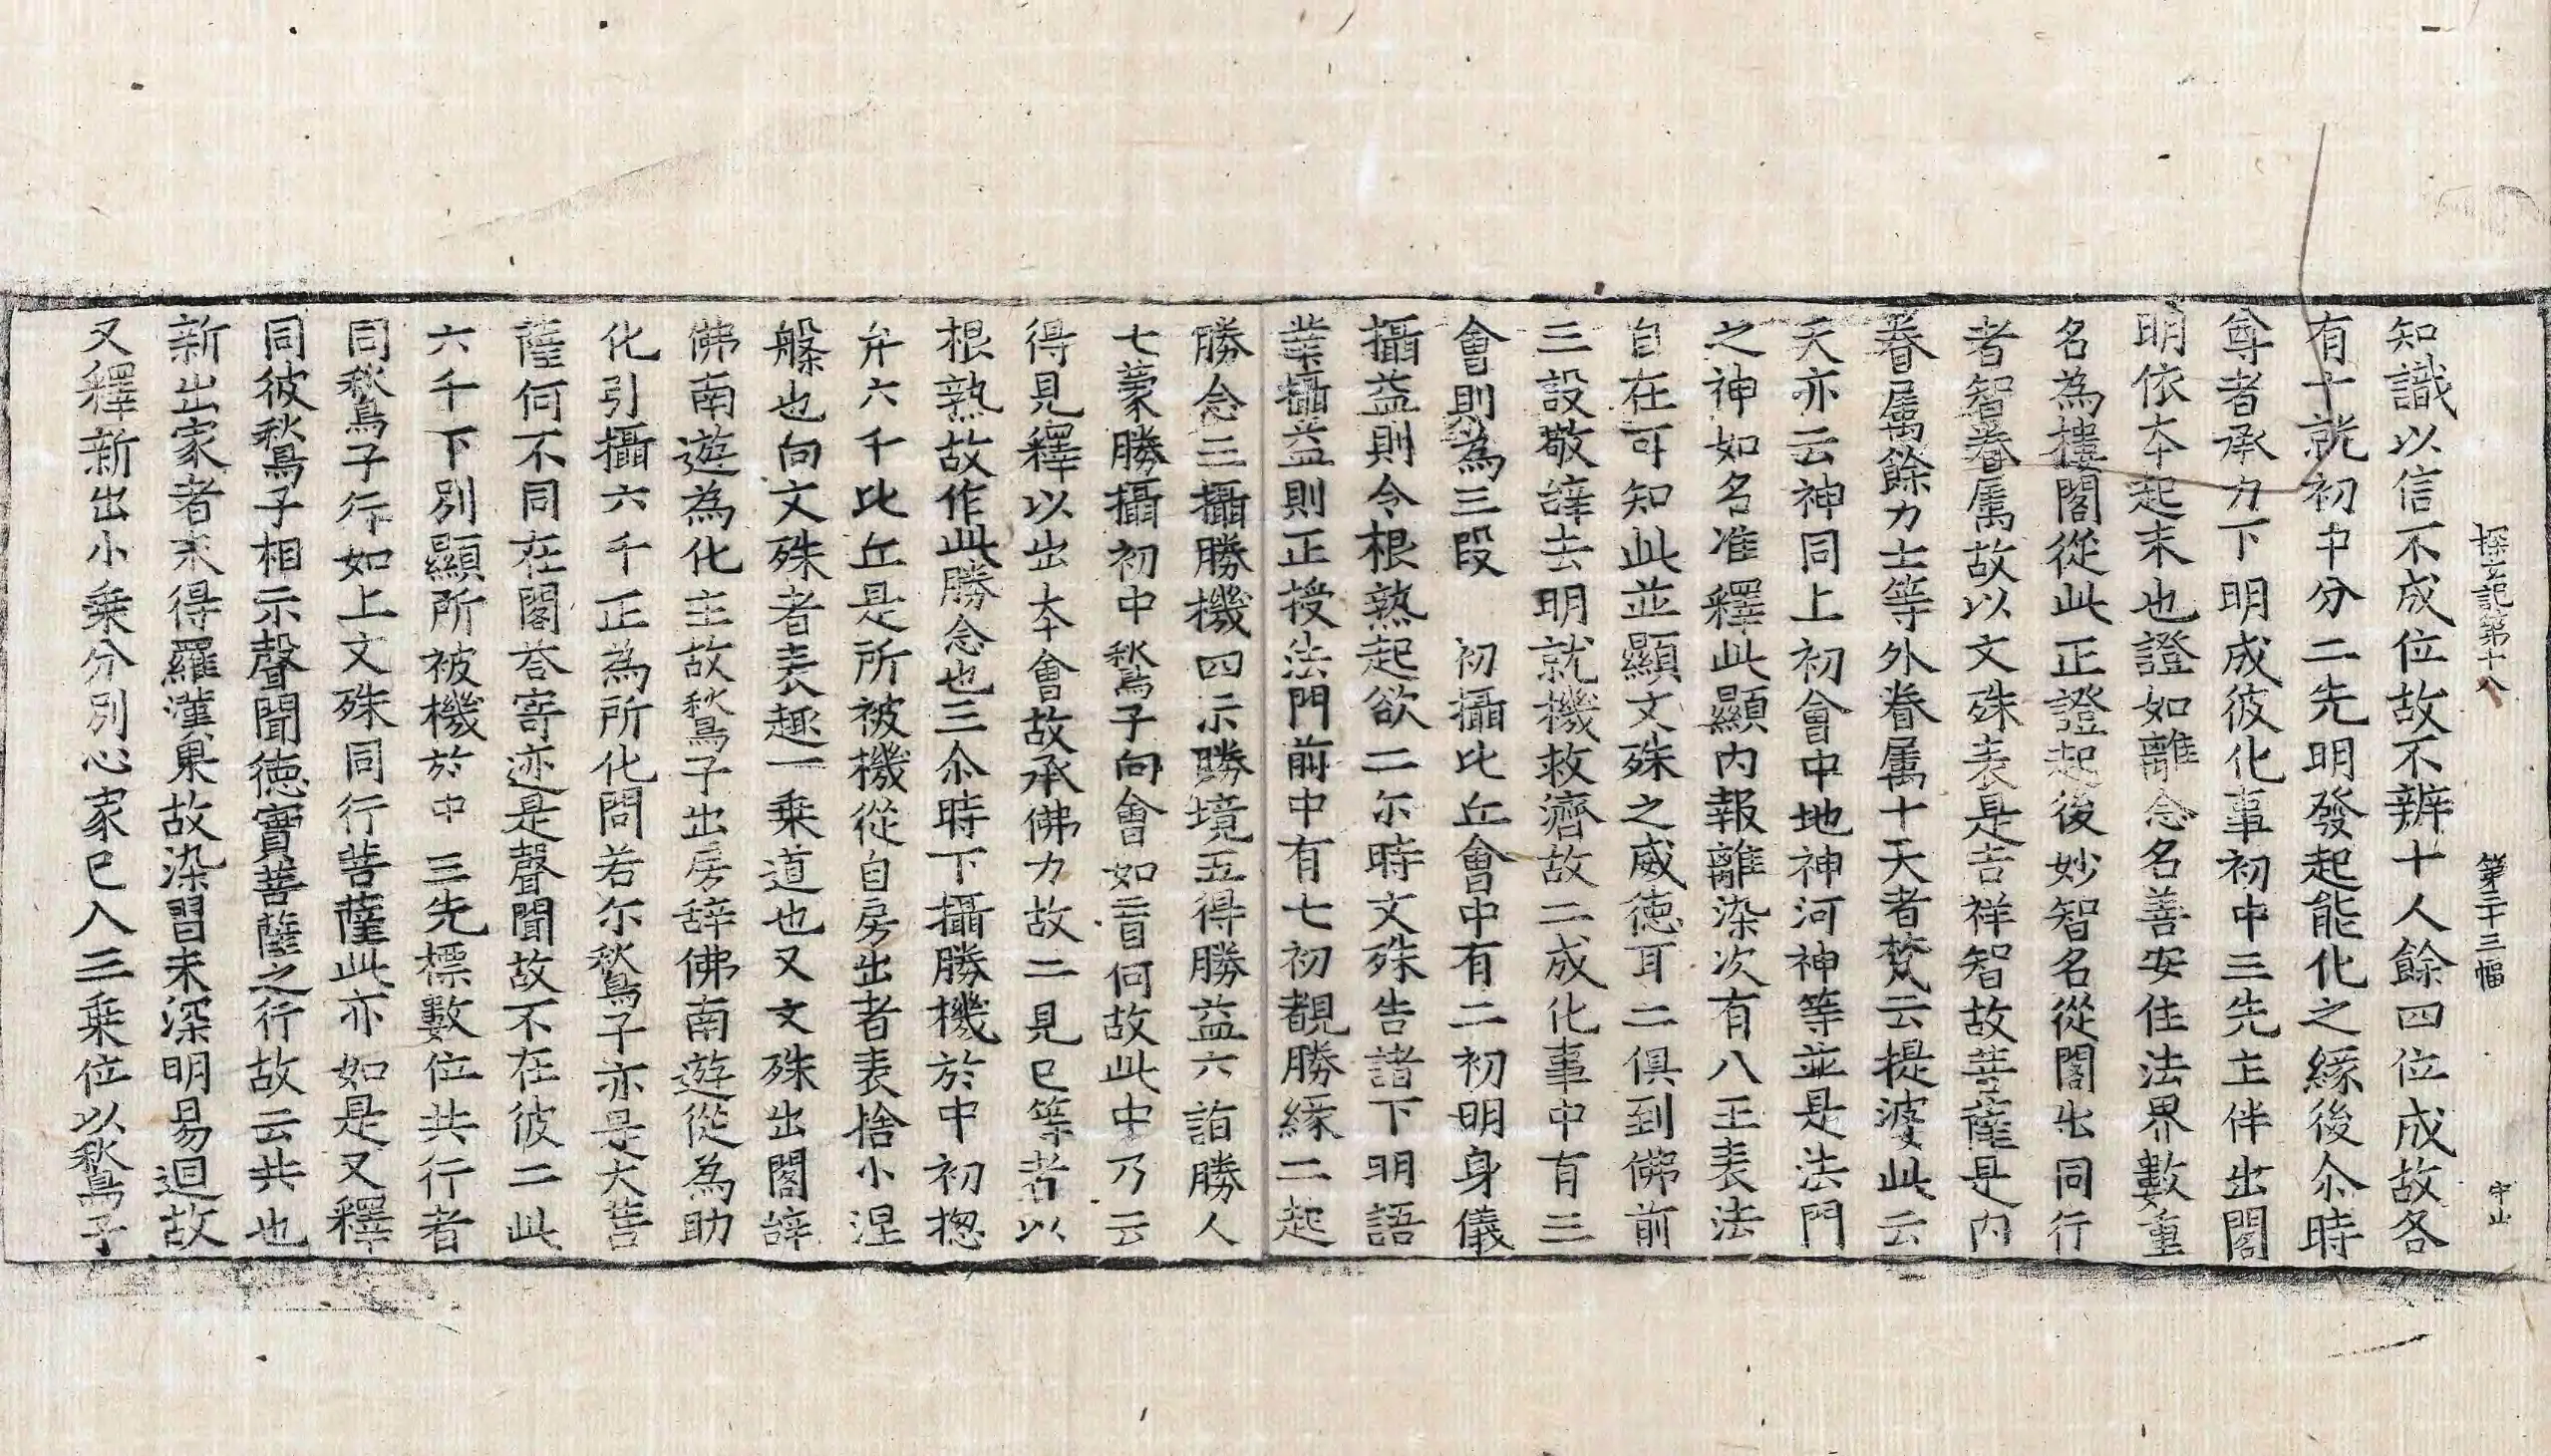 探玄記第十八　第二十三幅　守山
知識以信不成位故不辨十人餘四位成故各
有十就初中分二先明發起能化之緣後尒時
尊者承力下明成彼化事初中三先主伴出閣
明依本起末也證如離念名善安住法界數重
名為樓閣從此正證起後妙智名從閣出同行
者智眷屬故以文殊表是吉祥智故菩薩是內
眷屬餘力士等外眷属十天者梵云提婆此云
天亦云神同上初會中地神河神等並是法門
之神如名准釋此顯內報離染次有八王表法
自在可知此並顯文殊之威德耳二俱到佛前
三設敬辝去明就機救濟故二成化事中有三
會則為三段　初攝比丘會中有二初明身儀
攝益則令根熟起欲二尔時文殊告諸下明語
業攝益則正授法門前中有七初覩勝緣二起
勝念三攝勝機四示勝境五得勝益六詣勝人
七蒙勝攝初中鶖子向會如盲何故此中乃云
得見釋以出本會故承佛力故二見已等者以
根熟故作此勝念也三尒時下攝勝機於中初揔
弁六千比丘是所被機從自房出者表捨小涅
槃也向文殊者表趣一乗道也又文殊出閣辝
佛南遊為化主故鶖子出房辞佛南遊從為助
化引攝六千正為所化問若尔鶖子亦是大菩
薩何不同在閣荅寄迹是聲聞故不在彼二此
六千下別顯所被機於中三先標數位共行者
同鶖子行如上文殊同行菩薩此亦如是又釋
同彼鶖子相示聲聞德實菩薩之行故云共也
新出家者未得羅漢果故染習未深明易迴故
又釋新出小乗分別心家已入三乗位以鶖子